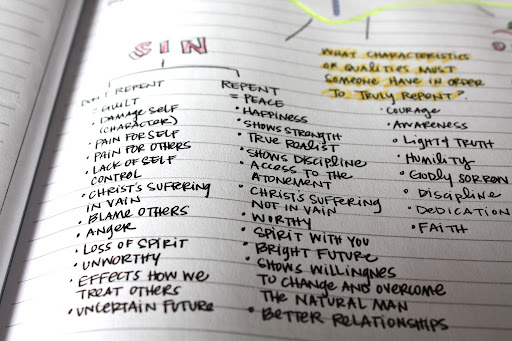 SIN
DON'T REPENT
= GUILT
• DAMAGE SELF
(CHARACTER)
• PAIN FOR SELF
• PAIN FOR OTHERS
• LACK OF SELF
CONTROL
• CHRIST'S SUFFERING
IN VAIN
• BLAME OTHERS
• ANGER
• LOSS OF SPIRIT
• UNWORTHY
• EFFECTS HOW WE
TREAT OTHERS
• UNCERTAIN FUTURE
REPENT
= PEACE
• HAPPINESS
• SHOWS STRENGTH
• TRUE REALIST
• SHOWS DISCIPLINE
• ACCESS TO THE
ATONEMENT
• CHRIST'S SUFFERING
NOT IN VAIN
• WORTHY
• SPIRIT WITH YOU
• BRIGHT FUTURE
• SHOWS WILLINGNES
TO CHANGE AND OVERCOME
THE NATURAL MAN
• BETTER RELATIONSHIPS
WHAT CHARACTERISTICS
OR QUALITIES MUST
SOMEONE HAVE IN ORDER
TO TRULY REPENT?
• COURAGE
• AWARENESS
• LIGHT & TRUTH
• HUMILITY
• GODLY SORROW
• DISCIPLINE
• DEDICATION
• FAITH